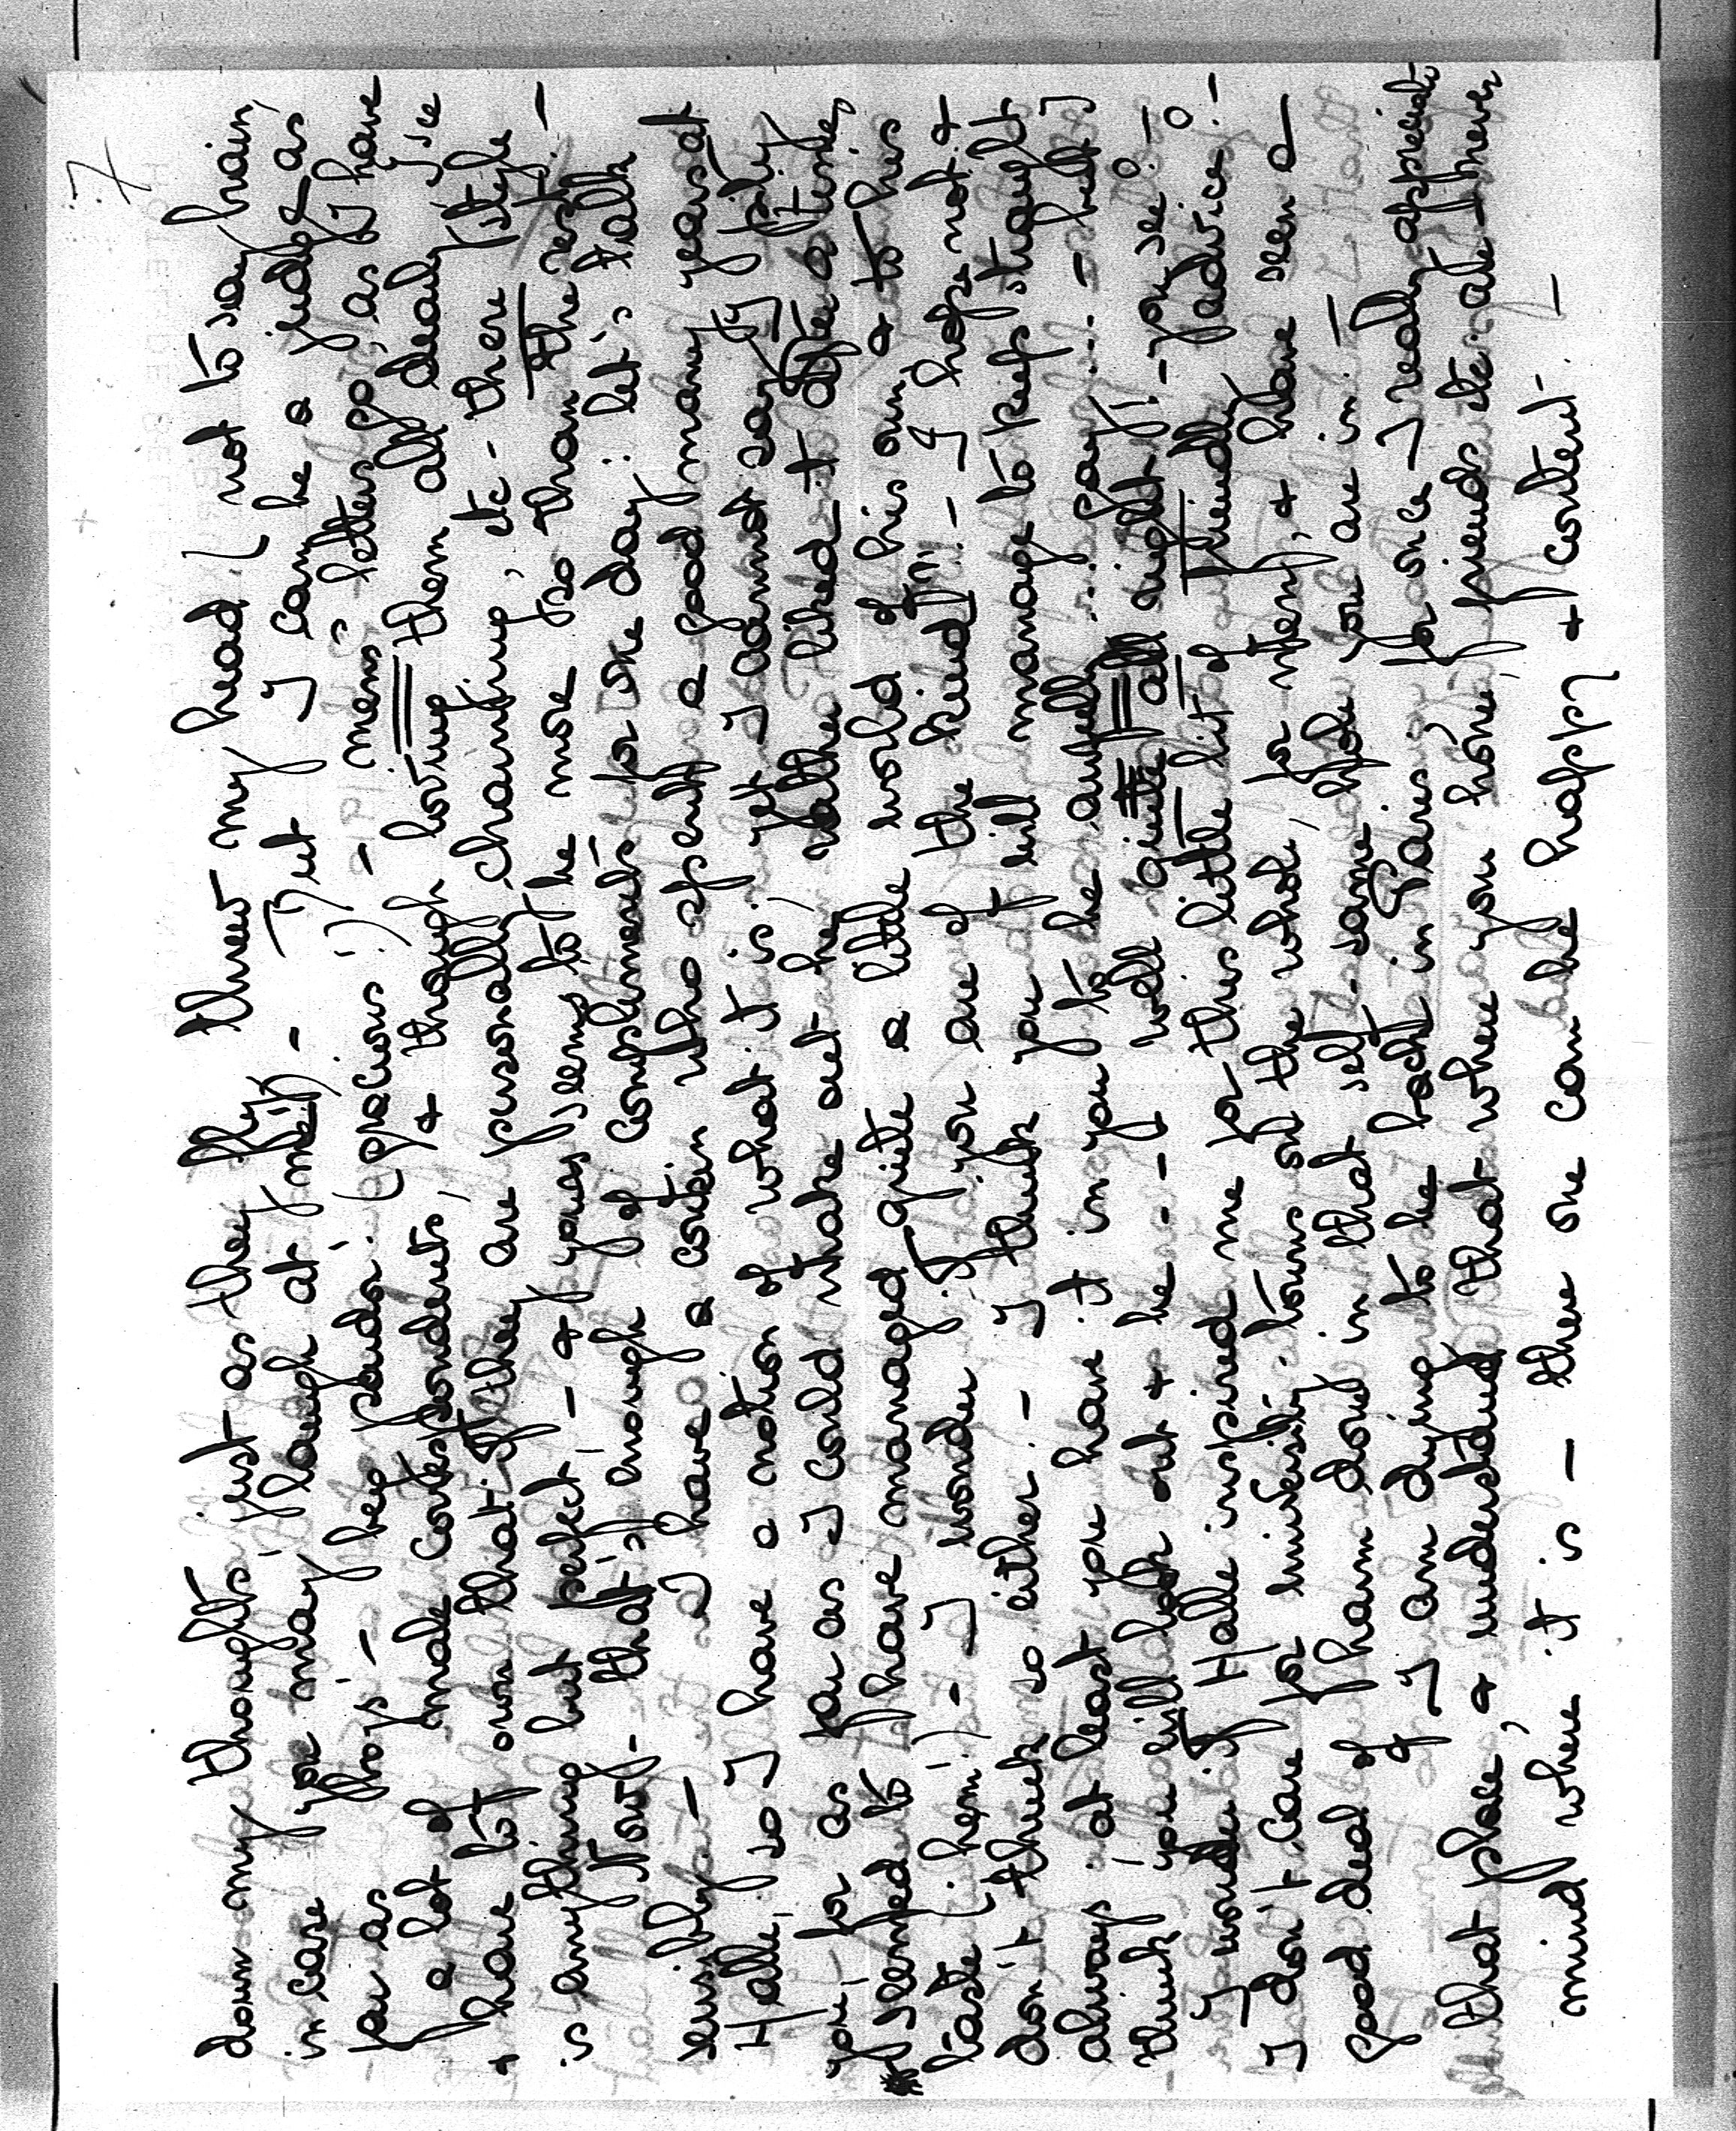 7
down my thoughts just as they fly thro' my head (not to say brain,
in case you may laugh at me!!) — But I can be a judge as
far as fro's — beg pards. (gracious!) — mens' letters go, as I have
a lot of male correspondents, & though loving them all dearly I've
& have to own that if they are personally charming, etc - there style
is anything but perfect! — & yours seems to be more so than the rest. —
Now - that's enough of compliments for one day: let's talk
sensibly — I have a cousin who spent a good many years at
Halle, so I have a notion of what it is; yet I cannot say I pity
you, for as far as I could make out he rather liked it after a time,
seemed to have managed quite a little world of his own & to his
taste (hem!) - I wonder if you are of the kind!!! - I hope not &
don't think so either. — I think you will manage to keep straight
always; at least you have it in you to be awfully jolly. - but
think you will look out & be - well quite all right! - you see! -
I wonder if Halle inspired me for this little bit of friendly advice!! -
I don't care for University towns on the whole, for men, & have seen a
good deal of harm done in that self-same hole you are in. —
I am dying to be back in Paris for once I really appreciate
that place, & understand that when you have friends etc. all never
mind where it is — there one can be happy & content. —